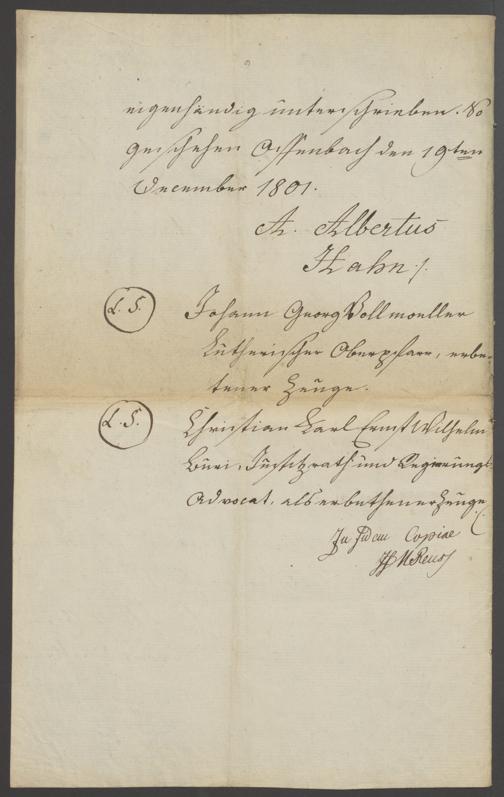 eigenhändig unterschrieben. So
geschehen Offenbach den 19ten
December 1801.
A. Albertus
Hahn
L. S. Johann Georg Vollmoeller
Lutherischer Oberpfarr, erbe-
tener Zeuge.
L. S. Christian Carl Ernst Wilhelm
Buri, Justizrath und Regierungs-
Advocat, als erbethener Zeuge
In fidem Copiae